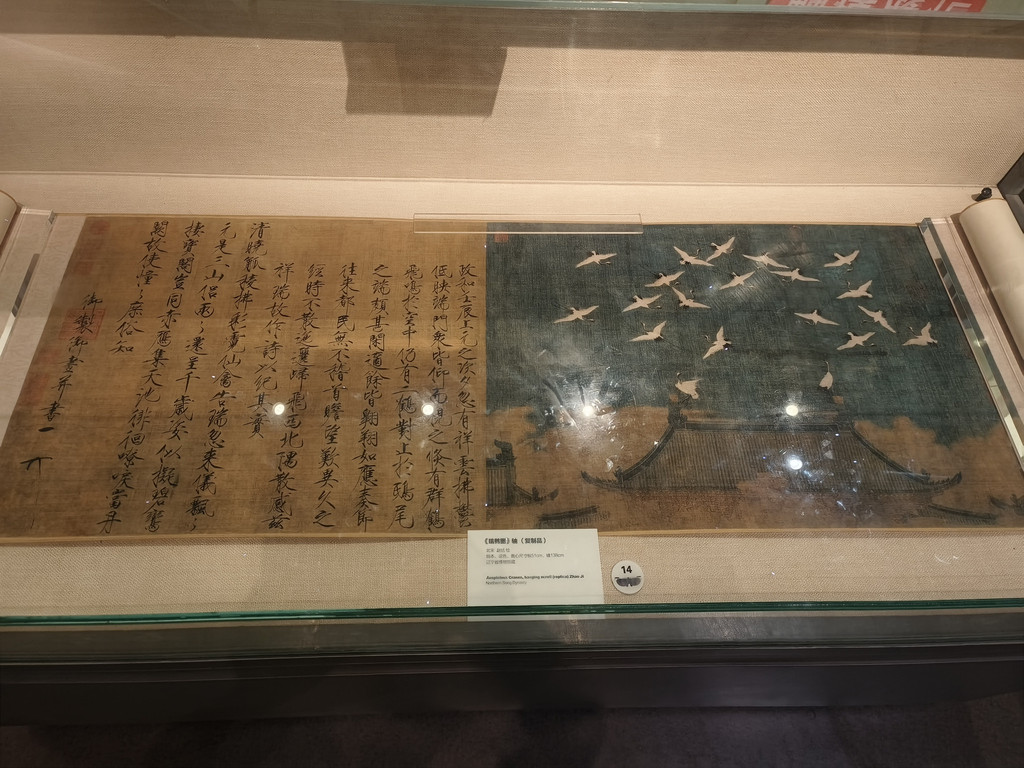 政和壬辰上元之次夕忽有祥雲拂鬱
低映端門衆皆仰而視之倏有群鶴
飛鳴於空中仍有二鶴對止於鴟尾
之端頗甚閑適餘皆翱翔如應奏節
往來都民無不稽首瞻望歎異久之
經時不散迤邐歸飛西北隅散感茲
祥瑞故作詩以紀其實
清曉觚稜拂彩霓仙禽告瑞忽來儀飄〻
元是三山侶兩〻還呈千歲姿似擬碧鸞
棲寶閣豈同赤鴈集天池徘徊嘹唳當丹
闕故使憧〻庶俗知
御製御畫并書
《瑞鹤图》轴（复制品）
北宋 赵佶
Auspicious Cranes, hanging scroll (replica) Zhao Ji
Northern Song Dynasty
14